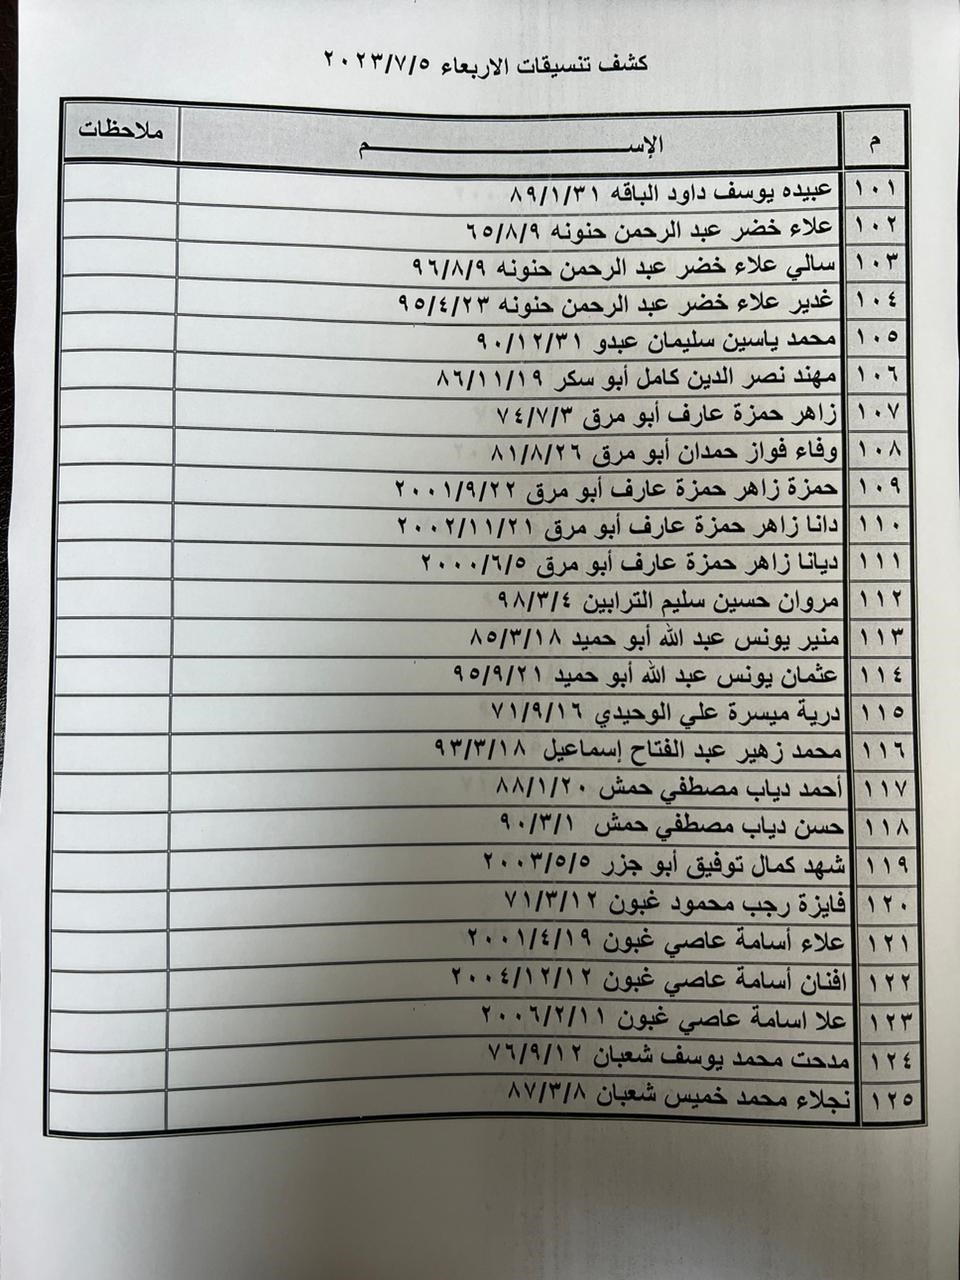 كشف تنسيقات الاربعاء ٢٠٢٣/٧/٥
م الإســـــــــــــــــم ملاحظات
١٠١ عبيده يوسف داود الباقه ٨٩/١/٣١
١٠٢ علاء خضر عبد الرحمن حنونه ٦٥/٨/٩
١٠٣ سالي علاء خضر عبد الرحمن حنونه ٩٦/٨/٩
١٠٤ غدير علاء خضر عبد الرحمن حنونه ٩٥/٤/٢٣
١٠٥ محمد ياسين سليمان عبدو ٩٠/١٢/٣١
١٠٦ مهند نصر الدين كامل أبو سكر ٨٦/١١/١٩
١٠٧ زاهر حمزة عارف أبو مرق ٧٤/٧/٣
١٠٨ وفاء فواز حمدان أبو مرق ٨١/٨/٢٦
١٠٩ حمزة زاهر حمزة عارف أبو مرق ٢٠٠١/٩/٢٢
١١٠ دانا زاهر حمزة عارف أبو مرق ٢٠٠٢/١١/٢١
١١١ ديانا زاهر حمزة عارف أبو مرق ٢٠٠٠/٦/٥
١١٢ مروان حسين سليم الترابين ٩٨/٣/٤
١١٣ منير يونس عبد الله أبو حميد ٨٥/٣/١٨
١١٤ عثمان يونس عبد الله أبو حميد ٩٥/٩/٢١
١١٥ درية ميسرة علي الوحيدي ٧١/٩/١٦
١١٦ محمد زهير عبد الفتاح إسماعيل ٩٣/٣/١٨
١١٧ أحمد دياب مصطفي حمش ٨٨/١/٢٠
١١٨ حسن دياب مصطفي حمش ٩٠/٣/١
١١٩ شهد كمال توفيق أبو جزر ٢٠٠٣/٥/٥
١٢٠ فايزة رجب محمود غبون ٧١/٣/١٢
١٢١ علاء أسامة عاصي غبون ٢٠٠١/٤/١٩
١٢٢ افنان أسامة عاصي غبون ٢٠٠٤/١٢/١٢
١٢٣ علا اسامة عاصي غبون ٢٠٠٦/٢/١١
١٢٤ مدحت محمد يوسف شعبان ٧٦/٩/١٢
١٢٥ نجلاء محمد خميس شعبان ٨٧/٣/٨